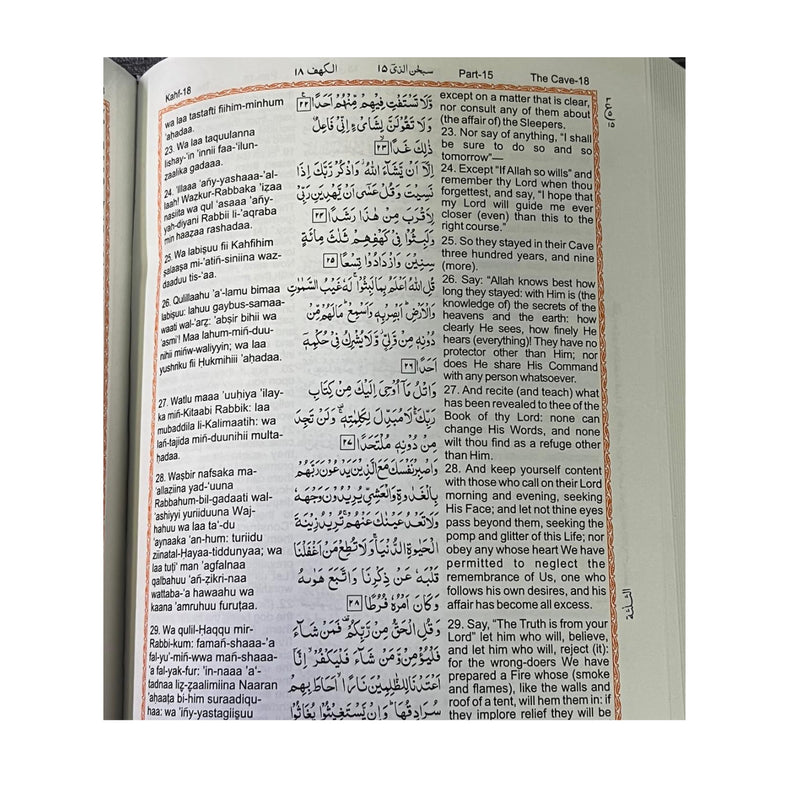 Kahf-18
الكهف ١٨
سبحٰن الذى ١٥
Part-15
The Cave-18
wa laa tastafti fiihim-minhum
'aḥadaa.
23. Wa laa taquulanna
lishay-'in 'innii faa-'ilun-
zaalika gadaaa.
24. 'Illaaa 'añy-yashaaa-'al-
laah! Wazkur-Rabbaka 'izaa
nasiita wa qul 'asaaa 'añy-
yah-diyani Rabbii li-'aqraba
min haaẓaa rashadaa.
25. Wa labiṣuu fii Kahfihim
ṣalaaṣa mi-'atiñ-siniina waz-
daaduu tis-'aa.
26. Qulillaahu 'a'-lamu bimaa
labiṣuu: lahuu gaybus-samaa-
waati wal-'arẓ: 'abṣir bihii wa
'asmi'! Maa lahum-miñ-duu-
nihii miñw-waliyyiñ; wa laa
yushriku fii Ḥukmihiii 'aḥadaa.
27. Watlu maaa 'uuḥiya 'ilay-
ka miñ-Kitaabi Rabbik: laa
mubaddila li-Kalimaatih: wa
lañ-tajida miñ-duunihii multa-
ḥadaa.
28. Waṣbir nafsaka ma-
'allaziina yad-'uuna
Rabbahum-bil-gadaati wal-
'ashiyyi yuriiduuna Waj-
hahuu wa laa ta'-du
'aynaaka 'an-hum: turiidu
ziinatal-Ḥayaa-tiddunyaa; wa
laa tuṭi' man 'agfalnaa
qalbahuu 'añ-ẓikri-naa
wattaba-'a hawaahu wa
kaana 'amruhuu furuṭaa.
29. Wa qulil-Ḥaqqu mir-
Rabbi-kum: famañ-shaaa-'a
fal-yu'-miñ-wwa mañ-shaaa-
'a fal-yak-fur: 'in-naaa 'a'-
tadnaa liẓ-ẓaalimiina Naaran
'aḥaaṭa bi-him suraadiqu-
haa: wa 'iñy-yastagiiṣuu
وَّلَا تَسْتَفْتِ فِيْهِمْ مِّنْهُمْ اَحَدًا ۝٢٢
وَلَا تَقُوْلَنَّ لِشَایْءٍ اِنِّیْ فَاعِلٌ
ذٰلِكَ غَدًا ۝٢٣
اِلَّاۤ اَنْ يَّشَآءَ اللّٰهُ وَاذْكُرْ رَّبَّكَ اِذَا
نَسِيْتَ وَقُلْ عَسٰۤى اَنْ يَّهْدِيَنِ رَبِّیْ
لِاَقْرَبَ مِنْ هٰذَا رَشَدًا ۝٢٤
وَلَبِثُوْا فِیْ كَهْفِهِمْ ثَلٰثَ مِائَةٍ
سِنِيْنَ وَازْدَادُوْا تِسْعًا ۝٢٥
قُلِ اللّٰهُ اَعْلَمُ بِمَا لَبِثُوْا لَهٗ غَيْبُ السَّمٰوٰتِ
وَالْاَرْضِ اَبْصِرْ بِهٖ وَاَسْمِعْ مَا لَهُمْ مِّنْ
دُوْنِهٖ مِنْ وَّلِیٍّ وَّلَا يُشْرِكُ فِیْ حُكْمِهٖۤ
اَحَدًا ۝٢٦
وَاتْلُ مَاۤ اُوْحِیَ اِلَيْكَ مِنْ كِتَابِ
رَبِّكَ لَا مُبَدِّلَ لِكَلِمٰتِهٖ وَلَنْ تَجِدَ
مِنْ دُوْنِهٖ مُلْتَحَدًا ۝٢٧
وَاصْبِرْ نَفْسَكَ مَعَ الَّذِيْنَ يَدْعُوْنَ رَبَّهُمْ
بِالْغَدٰوةِ وَالْعَشِیِّ يُرِيْدُوْنَ وَجْهَهٗ
وَلَا تَعْدُ عَيْنٰكَ عَنْهُمْ تُرِيْدُ زِيْنَةَ
الْحَيٰوةِ الدُّنْيَا وَلَا تُطِعْ مَنْ اَغْفَلْنَا
قَلْبَهٗ عَنْ ذِكْرِنَا وَاتَّبَعَ هَوٰىهُ
وَكَانَ اَمْرُهٗ فُرُطًا ۝٢٨
وَقُلِ الْحَقُّ مِنْ رَّبِّكُمْ فَمَنْ شَآءَ
فَلْيُؤْمِنْ وَّمَنْ شَآءَ فَلْيَكْفُرْ اِنَّاۤ
اَعْتَدْنَا لِلظّٰلِمِيْنَ نَارًا اَحَاطَ بِهِمْ
سُرَادِقُهَا وَاِنْ يَّسْتَغِيْثُوْا يُغَاثُوْا
except on a matter that is clear,
nor consult any of them about
(the affair of) the Sleepers.
23. Nor say of anything, "I shall
be sure to do so and so
tomorrow"—
24. Except "If Allah so wills" and
remember thy Lord when thou
forgettest, and say, "I hope that
my Lord will guide me ever
closer (even) than this to the
right course."
25. So they stayed in their Cave
three hundred years, and nine
(more).
26. Say: "Allah knows best how
long they stayed: with Him is (the
knowledge of) the secrets of the
heavens and the earth: how
clearly He sees, how finely He
hears (everything)! They have no
protector other than Him; nor
does He share His Command
with any person whatsoever.
27. And recite (and teach) what
has been revealed to thee of the
Book of thy Lord: none can
change His Words, and none
wilt thou find as a refuge other
than Him.
28. And keep yourself content
with those who call on their Lord
morning and evening, seeking
His Face; and let not thine eyes
pass beyond them, seeking the
pomp and glitter of this Life; nor
obey any whose heart We have
permitted to neglect the
remembrance of Us, one who
follows his own desires, and his
affair has become all excess.
29. Say, "The Truth is from your
Lord" let him who will, believe,
and let him who will, reject (it):
for the wrong-doers We have
prepared a Fire whose (smoke
and flames), like the walls and
roof of a tent, will hem them in: if
they implore relief they will be
الثلثة